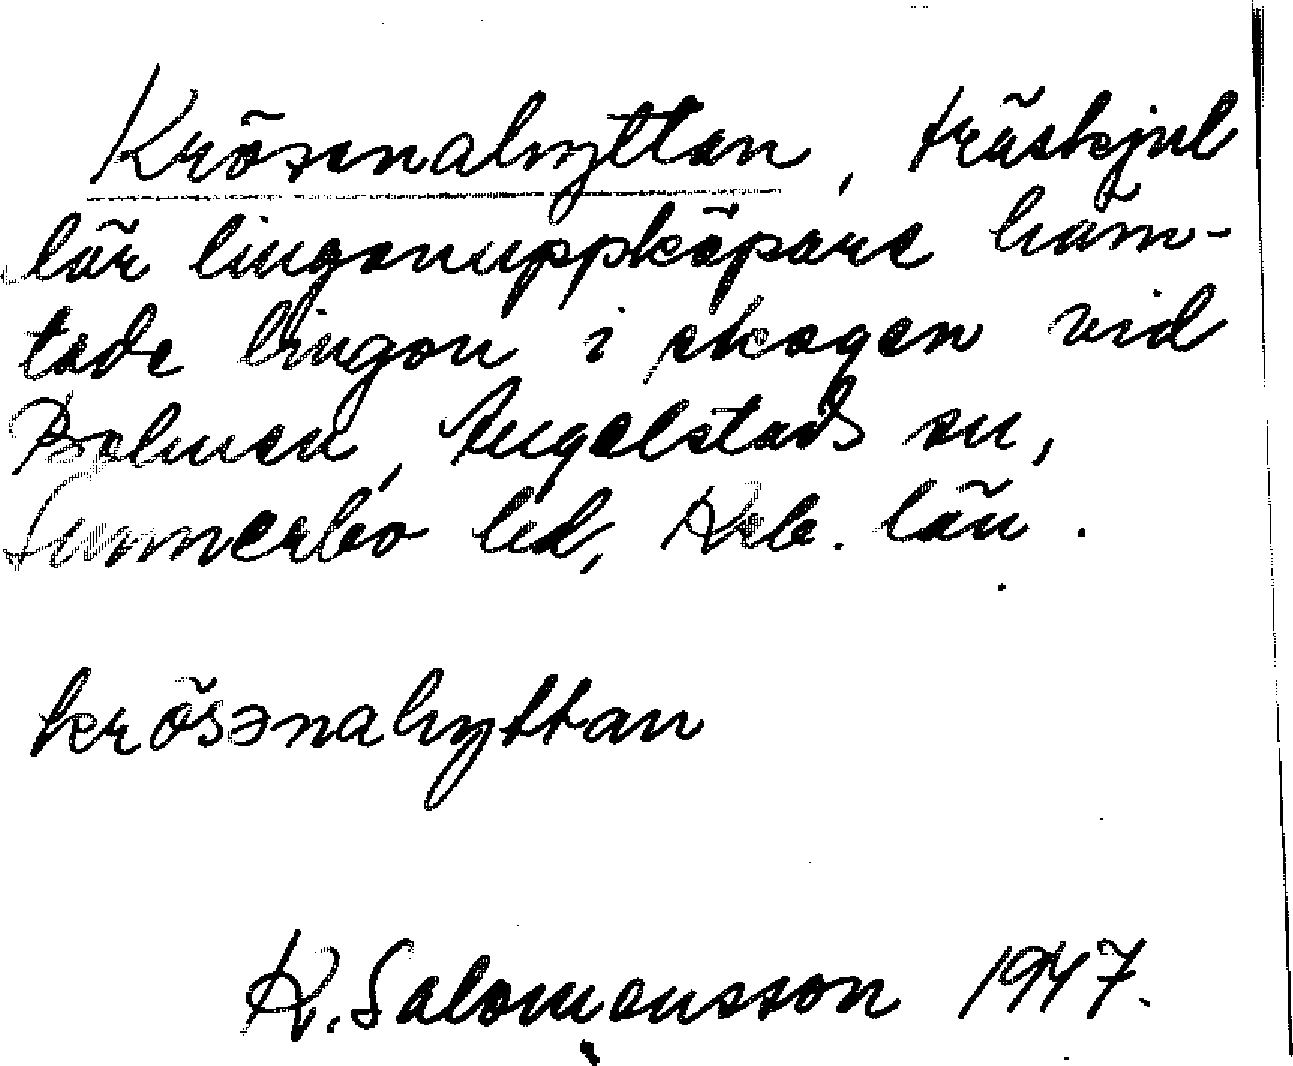 Krösenahyttan, träskjul
där lingonuppköpare häm-
tade lingon i skogen vid
Bolmen, Angelstads sn,
Sunnerbo hd, Krb. län.
krösənahyttan
K. Salomonsson 1947.